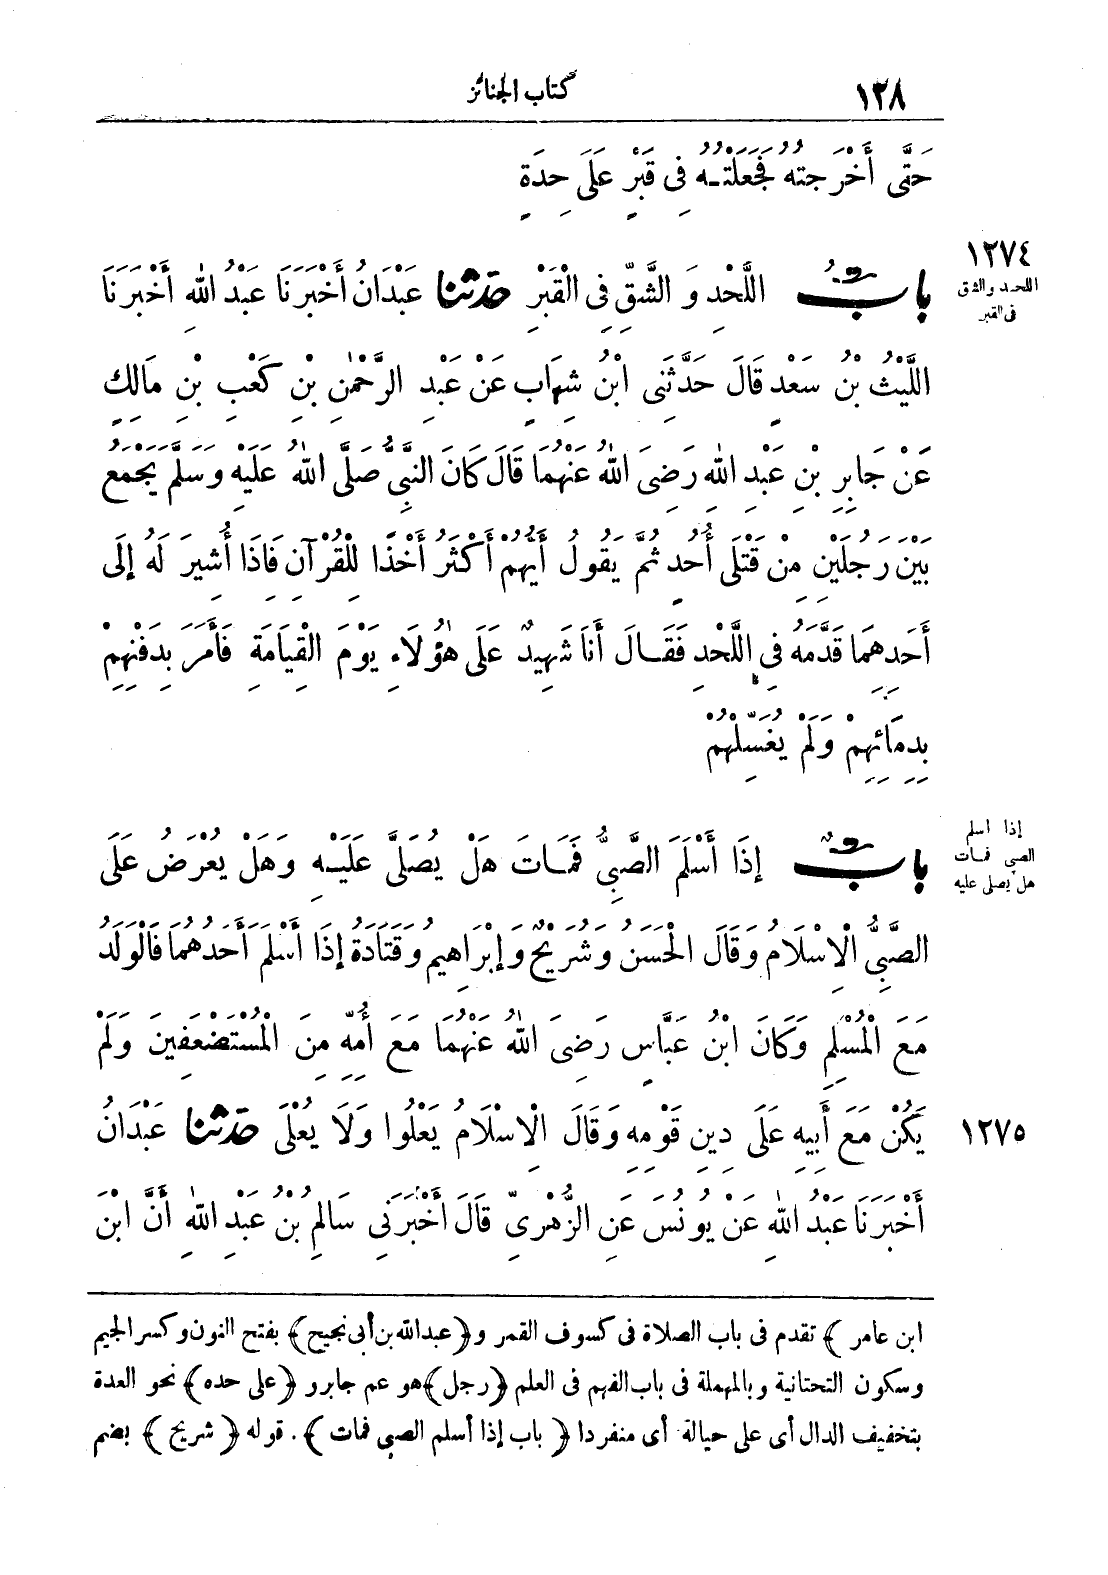 ١٢٨
كتاب الجنائز
حَتَّى أَخْرَجْتُهُ فَجَعَلْتُـهُ فِى قَبْرٍ عَلَى حِدَةٍ
١٢٧٤
اللحد والشق
فى القبر
بابُ اللَّحْدِ وَ الشَّقِّ فِى الْقَبْرِ حدثنا عَبْدَانُ أَخْبَرَنَا عَبْدُ اللهِ أَخْبَرَنَا
اللَّيْثُ بْنُ سَعْدٍ قَالَ حَدَّثَنِى ابْنُ شِهَابٍ عَنْ عَبْدِ الرَّحْمٰنِ بْنِ كَعْبِ بْنِ مَالِكٍ
عَنْ جَابِرِ بْنِ عَبْدِ اللهِ رَضِىَ اللهُ عَنْهُمَا قَالَ كَانَ النَّبِىُّ صَلَّى اللهُ عَلَيْهِ وَسَلَّمَ يَجْمَعُ
بَيْنَ رَجُلَيْنِ مِنْ قَتْلَى أُحُدٍ ثُمَّ يَقُولُ أَيُّهُمْ أَكْثَرُ أَخْذًا لِلْقُرْآنِ فَاِذَا أُشِيرَ لَهُ إِلَى
أَحَدِهِمَا قَدَّمَهُ فِى اللَّحْدِ فَقَـالَ أَنَا شَهِيدٌ عَلَى هٰؤُلَاءِ يَوْمَ الْقِيَامَةِ فَأَمَرَ بِدَفْنِهِمْ
بِدِمَائِهِمْ وَلَمْ يُغَسِّلْهُمْ
إذا اسلم
الصبى فمات
هل يصلى عليه
بابٌ إِذَا أَسْلَمَ الصَّبِىُّ فَمَـاتَ هَلْ يُصَلَّى عَلَيْـهِ وَهَلْ يُعْرَضُ عَلَى
الصَّبِىِّ الْاِسْلَامُ وَقَالَ الْحَسَنُ وَشُرَيْحٌ وَإِبْرَاهِيمُ وَقَتَادَةُ إِذَا أَسْلَمَ أَحَدُهُمَا فَالْوَلَدُ
مَعَ الْمُسْلِمِ وَكَانَ ابْنُ عَبَّاسٍ رَضِىَ اللهُ عَنْهُمَا مَعَ أُمِّهِ مِنَ الْمُسْتَضْعَفِينَ وَلَمْ
١٢٧٥
يَكُنْ مَعَ أَبِيهِ عَلَى دِينِ قَوْمِهِ وَقَالَ الْاِسْلَامُ يَعْلُوا وَلَا يُعْلَى حدثنا عَبْدَانُ
أَخْبَرَنَا عَبْدُ اللهِ عَنْ يُونُسَ عَنِ الزُّهْرِىِّ قَالَ أَخْبَرَنِى سَالِمُ بْنُ عَبْدِ اللهِ أَنَّ ابْنَ
ابن عامر﴾ تقدم فى باب الصلاة فى كسوف القمر و﴿عبدالله بن أبى نجيح﴾ بفتح النون وكسر الجيم
وسكون التحتانية وبالمهملة فى باب الفهم فى العلم ﴿رجل﴾ هو عم جابر و ﴿على حده﴾ نحو العدة
بتخفيف الدال أى على حيالة أى منفردا ﴿باب إذا أسلم الصبى فمات﴾. قوله ﴿شريح﴾ بضم